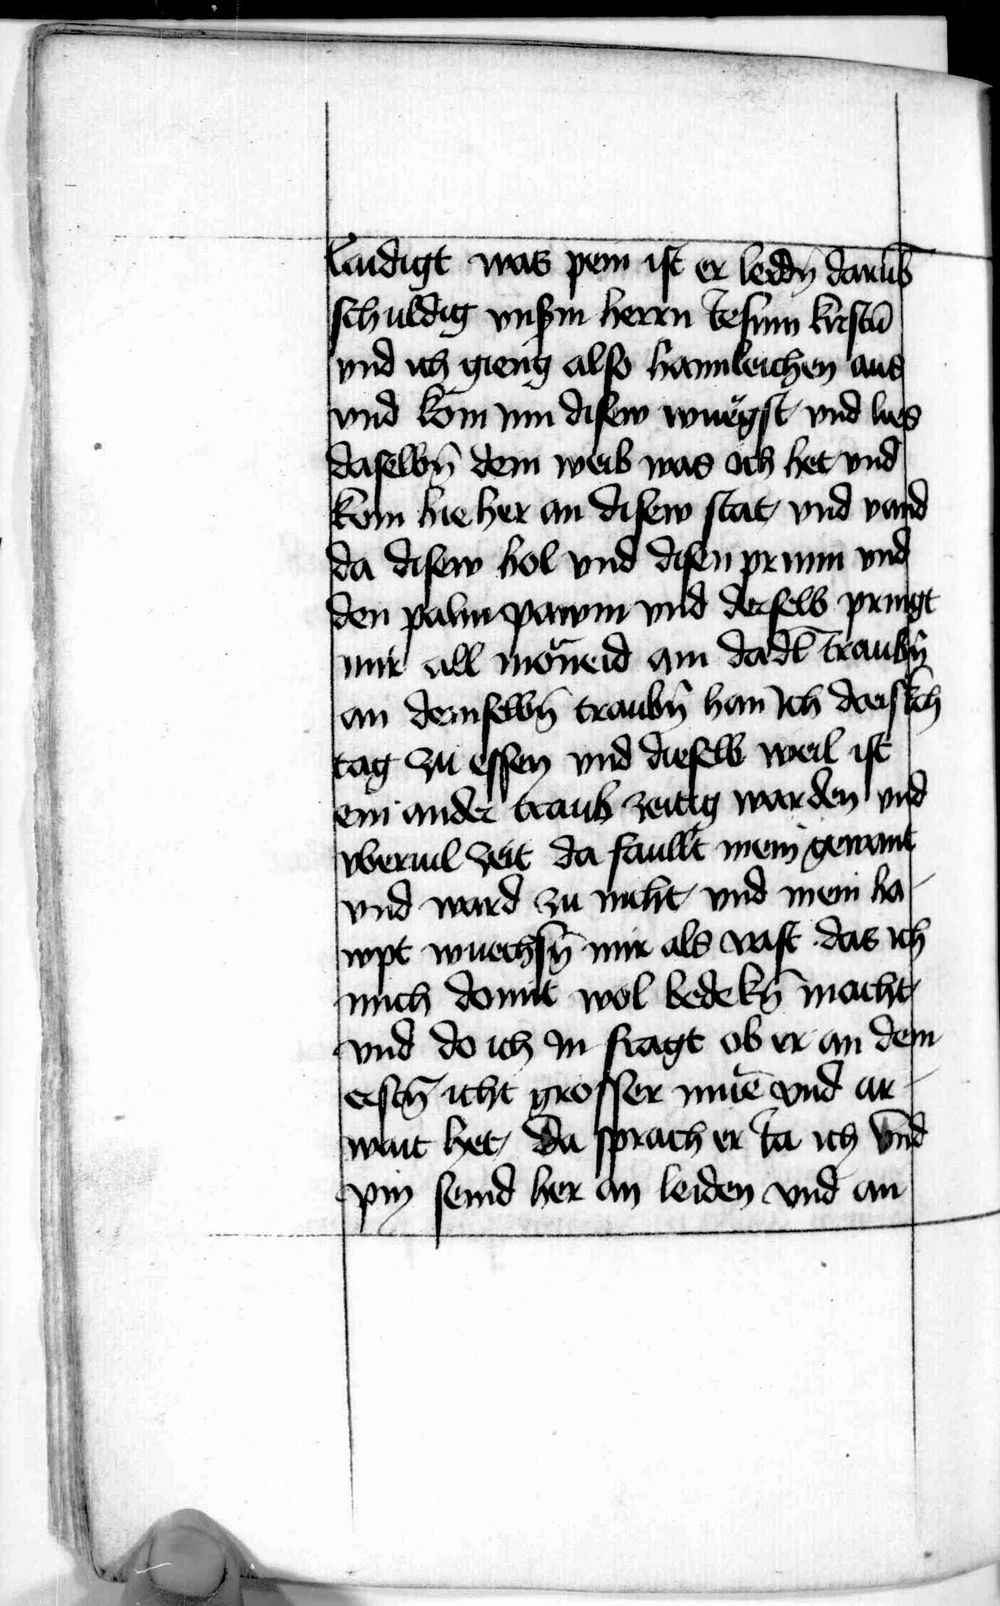 laidigt was pein ist er leddn̄ darub̄
schuldig vnsm̄ herrn Jesum kristū
vnd ich gieng also hamleichen aus
vnd kom jnn disew wuegst vnd lies
daselbn̄ dem weib was ich het vnd
kom hie her an disew stat vnd vand
da disew hol vnd disen prunn vnd
den palm pawm vnd derselb pringt
mir all moneid ain dadl traubn̄
an demselbn̄ traubn̄ han Ich
tag zu essen vnd dieselb weil ist
ein ander traub zeitig warden vnd
vberuil zeit da faullt mein gewant
vnd ward zu nicht vnd mein ha-
wpt wuechsn̄ mir als vast das ich
mich domit wol bedekn̄ macht
vnd do ich in fragt ob er an dem
erstn̄ icht grosser mue vnd ar-
wait het Da sprach er Ja ich vnd
pin seind her an leiden vnd an